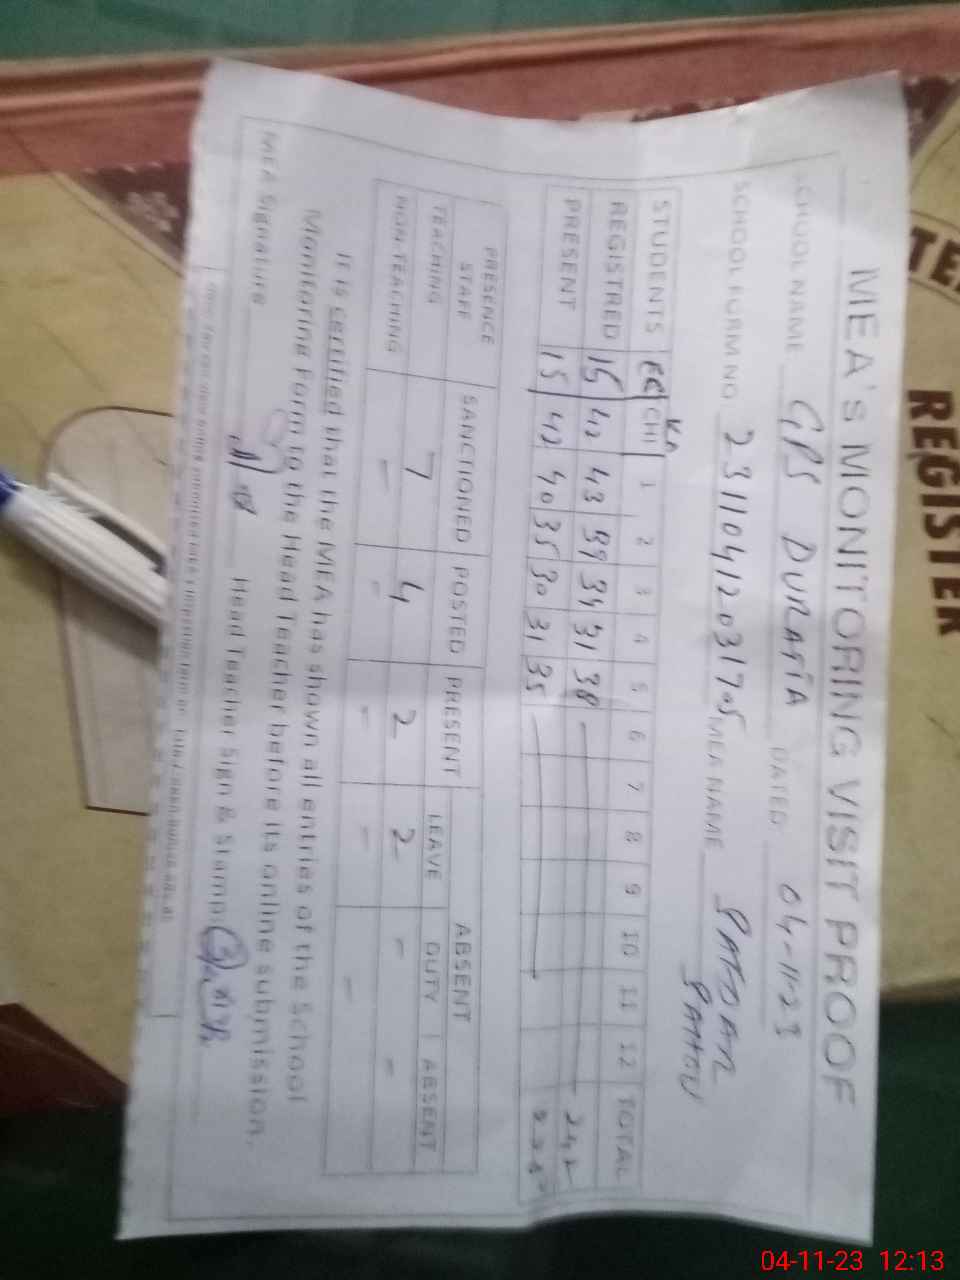 MEA's MONITORING VISIT PROOF
SCHOOL NAME GPS DURATIA DATED 04-11-23
SCHOOL FORM NO 23110412031705 MEA NAME SAFDAR
STUDENTS ECE KACHI 1 2 3 4 5 6 7 8 9 10 11 12 TOTAL
REGISTRED 15 42 43 39 34 31 38
PRESENT 15 42 40 35 30 31 35
PRESENCE STAFF SANCTIONED POSTED PRESENT ABSENT
LEAVE DUTY ABSENT
TEACHING 7 4 2 2 - -
NON TEACHING - - - - -
It is certified that the MEA has shown all entries of the School
Monitoring Form to the Head Teacher before its online submission.
MEA Signature Head Teacher Sign & Stamp
TER
REGISTER
04-11-23 12:13